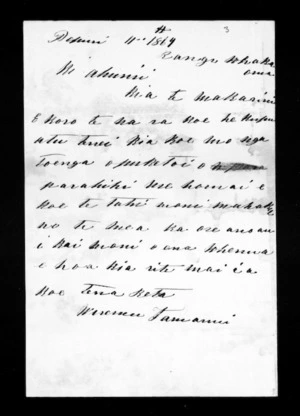 3
11 1869
Rangi whaka
oma
Ki ahuriri
Kia te makarini
E koro te na ra koe he kupu
atu tenei kia koe mo nga
toenga o
parahiki me homai e
koe te tahi moni maku
no te mea ka ore ano au
i kai moni o ona whenua
e hoa kia rite mai i a
koe tena reta
Wiremu